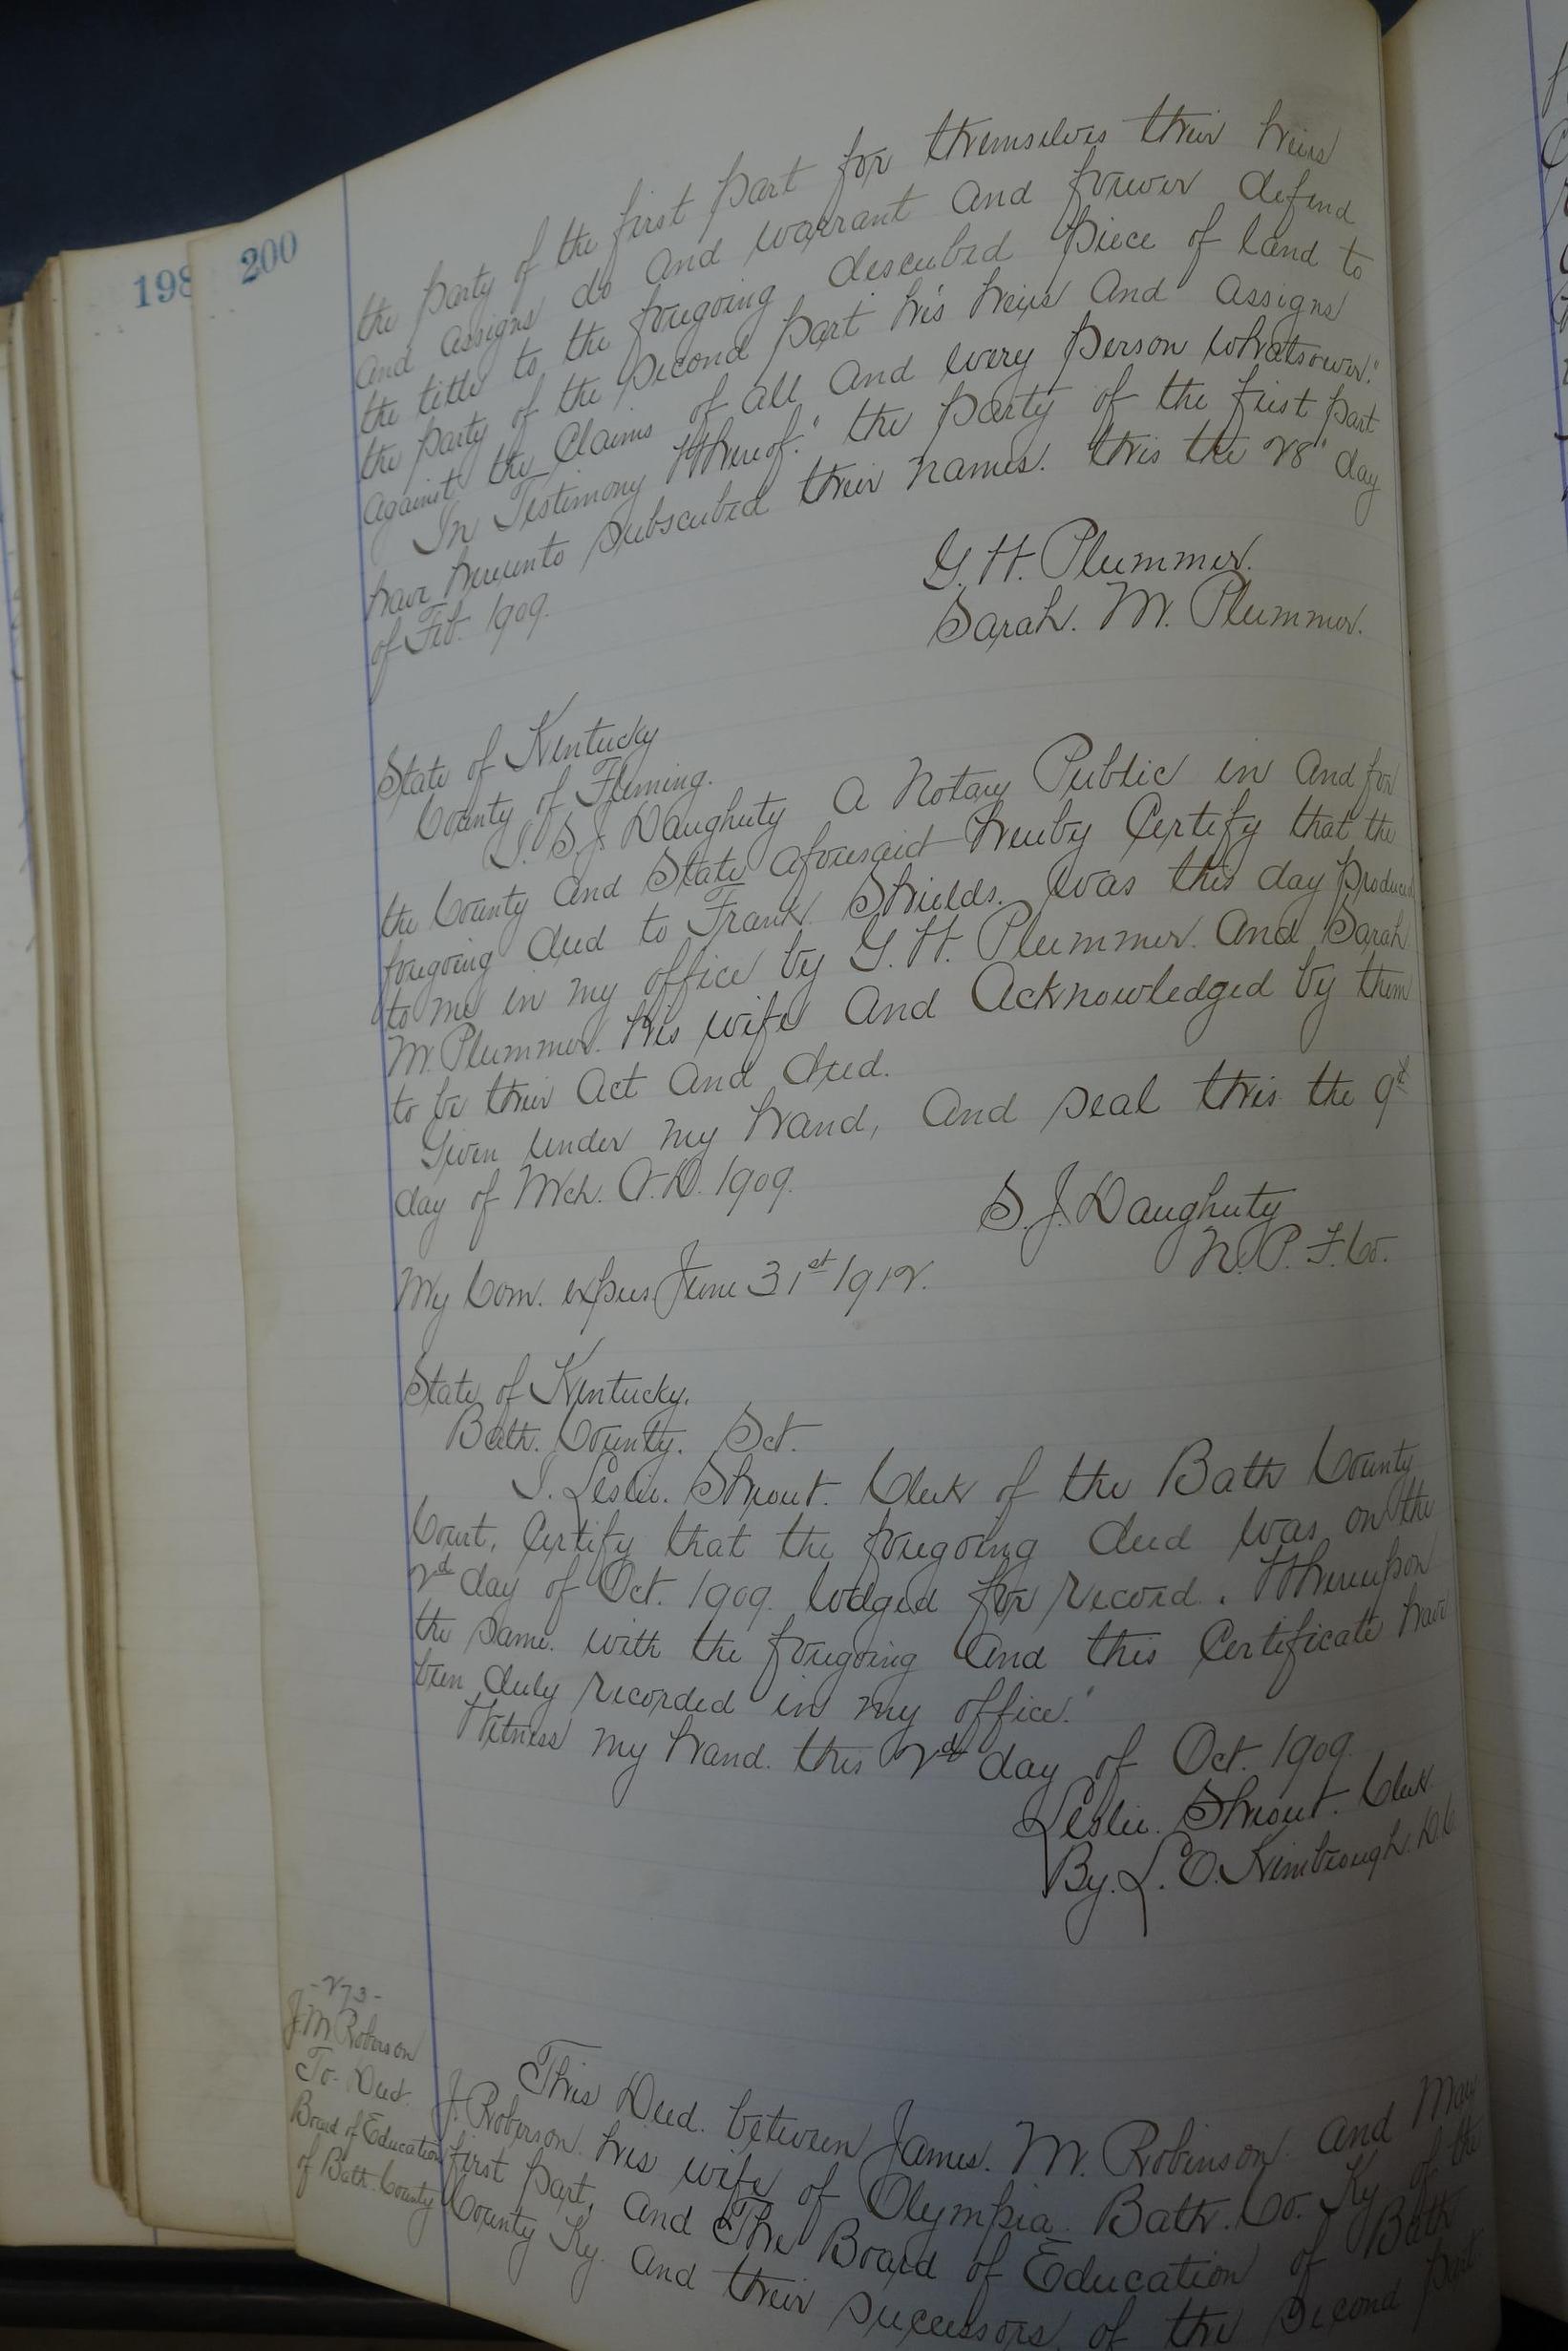 198
200
the party of the first part for themselves their heirs
and assigns do and warrant and forever defend
the title to the foregoing described piece of land to
the party of the second part his heirs and assigns
against the Claims of all and every person whatsoever."
In Testimony Whereof." the party of the first part
have hereunto subscribed their names. this the 28" day
of Feb. 1909.
G. H. Plummer.
Sarah. M. Plummer.
State of Kentucky
County of Fleming.
I. S. J. Daugherty a Notary Public in and for
the County and State aforesaid hereby Certify that the
foregoing deed to Frank Shields. was this day produced
to me in my office by G. H. Plummer. and Sarah
M. Plummer. his wife and Acknowledged by them
to be their act and deed.
Given under my hand, and seal this the 9th
day of Mch. A.D. 1909.
S. J. Daugherty
N. P. F. Co.
My Com. expires June 31st 1912.
State of Kentucky.
Bath. County. Sct.
I. Leslie. Shrout. Clerk of the Bath County
Court, Certify that the foregoing deed was on the
2nd day of Oct. 1909. lodged for record. Whereupon
the same. with the foregoing and this Certificate have
been duly recorded in my office."
Witness my hand. this 2nd day of Oct. 1909.
Leslie. Shrout. Clerk
By. L. O. Kimbrough. D.C.
-273-
J. M. Roberson
To- Deed.
Board of Education
of Bath. County
This Deed. between James. M. Robinson. and May
J. Roberson. his wife of Olympia. Bath. Co. Ky of the
first part, and The Board of Education of Bath
County Ky. and their successors, of the second part